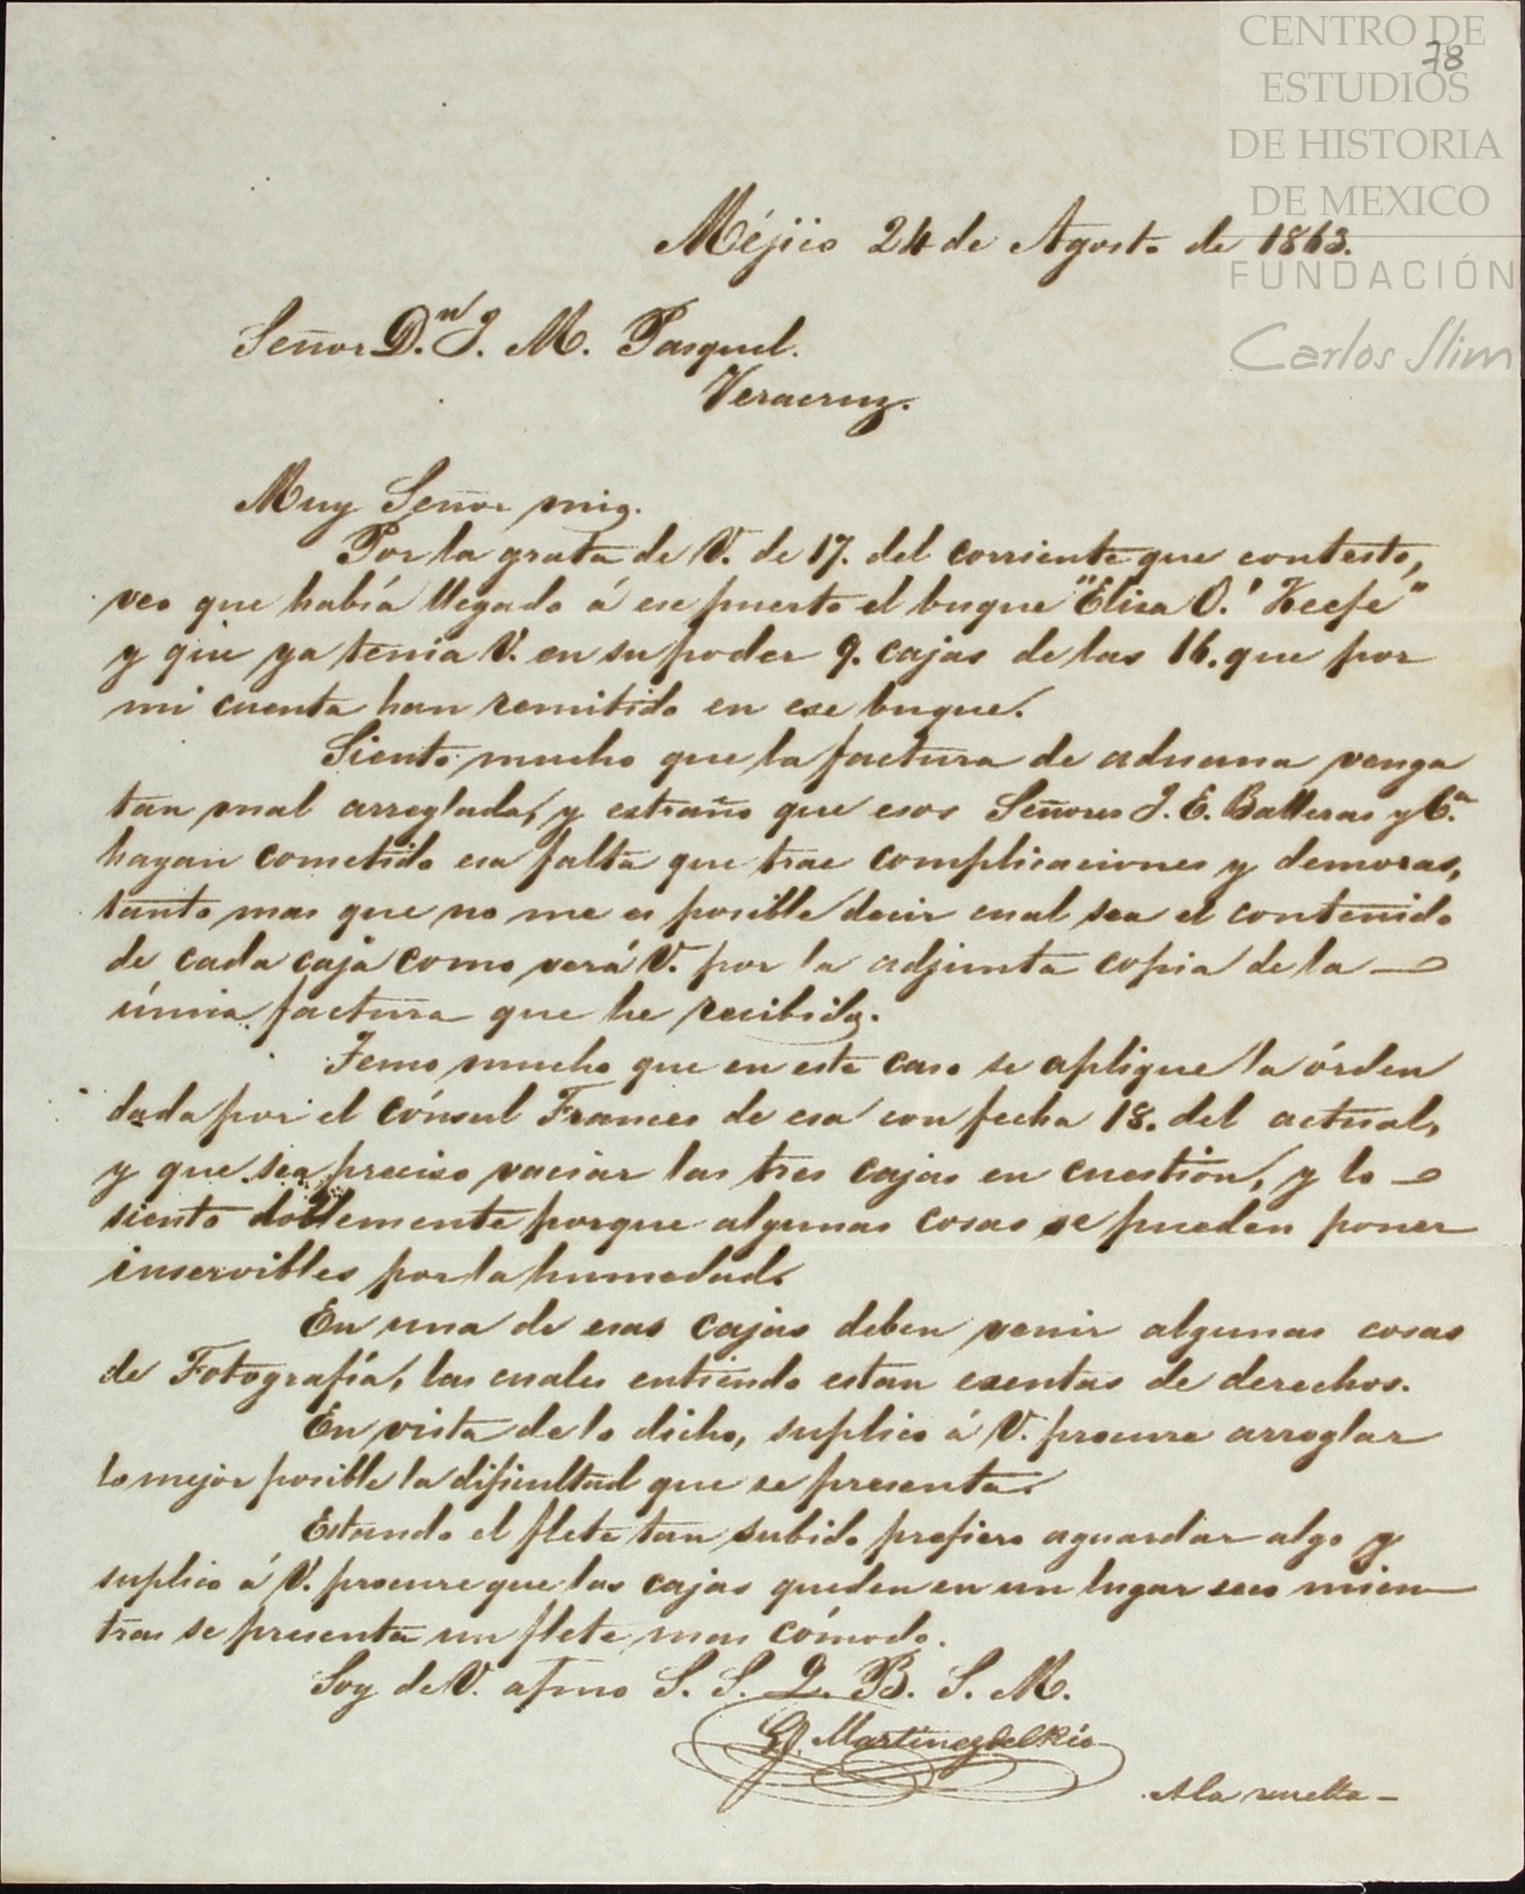 CENTRO DE
ESTUDIOS
DE HISTORIA
DE MEXICO
FUNDACIÓN
Carlos Slim
78
Méjico 24 de Agosto de 1863.
Señor D.n J. M. Pasquel.
Veracruz.
Muy Señor mio.
Por la grata de V. de 17. del corriente que contesto,
veo que había llegado á ese puerto el buque "Elisa O.' Keefe"
y que ya tenia V. en su poder 9. cajas de las 16. que por
mi cuenta han remitido en ese buque.
Siento mucho que la factura de aduana venga
tan mal arreglada, y estraño que esos Señores J. E. Batteras y C.a
hayan cometido esa falta que trae complicaciones y demoras,
tanto mas que no me es posible decir cual sea el contenido
de cada caja como verá V. por la adjunta copia de la —
única factura que he recibido.
Temo mucho que en este caso se aplique la órden
dada por el Cónsul Frances de esa con fecha 18. del actual,
y que sea preciso vaciar las tres cajas en cuestion, y lo —
siento doblemente porque algunas cosas se pueden poner
inservibles por la humedad.
En una de esas cajas deben venir algunas cosas
de Fotografía, las cuales entiendo estan exentas de derechos.
En vista de lo dicho, suplico á V. procure arreglar
lo mejor posible la dificultad que se presenta.
Estando el flete tan subido prefiero aguardar algo y
suplico á V. procure que las cajas queden en un lugar seco mien
tras se presenta un flete mas cómodo.
Soy de V. afmo S. S. Q. B. S. M.
Martinez del Rio
A la vuelta —